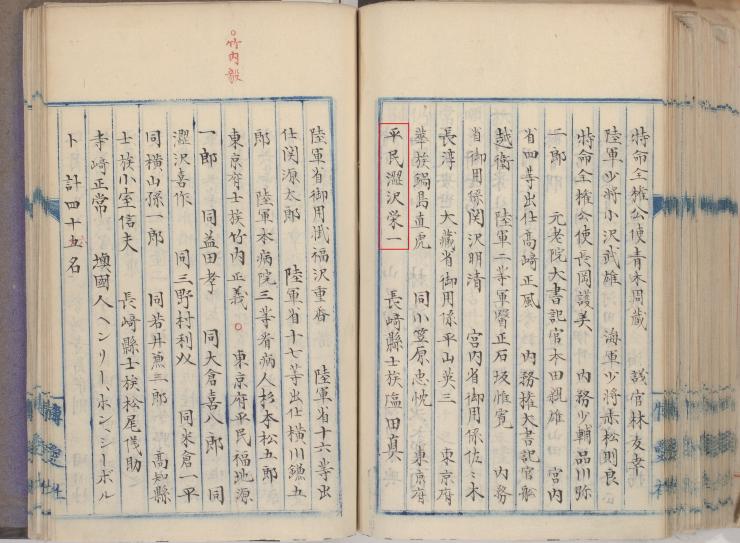 特命全権公使青木周蔵 議官林友幸
陸軍少将小沢武雄 海軍少将赤松則良
特命全権公使長岡護美 内務少輔品川弥
二郎 元老院大書記官本田親雄 宮内
省四等出仕高崎正風 内務権大書記官船
越衛 陸軍二等軍医正石坂惟寛 内務
省御用係関沢明清 宮内省御用係佐々木
長淳 大蔵省御用係平山英三 東京府
華族鍋島直虎 同小笠原忠忱 東京府
平民澀沢栄一 長崎縣士族塩田真
陸軍省御用掛福沢重香 陸軍省十六等出
仕関源太郎 陸軍省十七等出仕横川鎌五
郎 陸軍本病院三等看病人杉本松五郎
東京府士族竹内正義 東京府平民福地源
一郎 同益田孝 同大倉喜八郎 同
澀沢喜作 同三野村利以 同米倉一平
同横山孫一郎 同若井兼三郎 高知縣
士族小室信夫 長崎縣士族松尾儀助
寺崎正常 墺國人ヘンリー、ホン、シーボル
ト 計四十五名
竹内毅